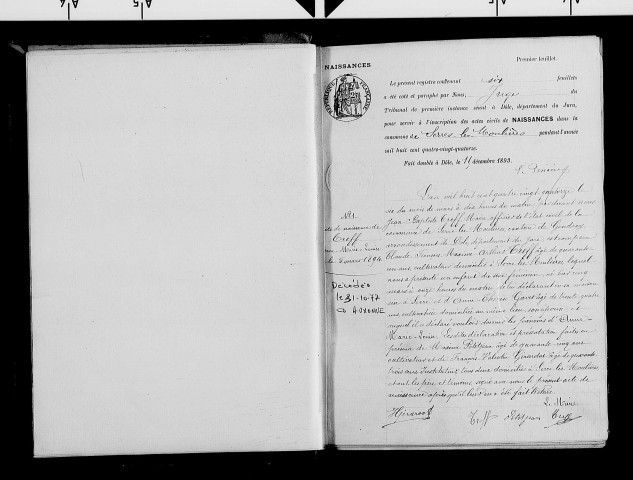 NAISSANCES
Premier feuillet.
Le présent registre contenant six feuillets
a été coté et paraphé par Nous, Juge du
Tribunal de première instance séant à Dôle, département du Jura,
pour servir à l'inscription des actes civils de NAISSANCES dans la
commune de Serres-les-Moulières pendant l'année
mil huit cent quatre-vingt-quatorze.
Fait double à Dôle, le 14 décembre 1893.
N° 1
de naissance de
Treff
Marie Louise
mars 1894
Décédée
le 31-10-77
à AUXONNE
L'an mil huit cent quatre vingt quatorze le
six du mois de mars à dix heures du matin, par devant nous
Jean Baptiste Treff Maire officier de l'état civil de la
commune de Serre les Moulières canton de Gendrey
arrondissement de Dôle, département du Jura est comparu
Claude François Maxime Arthur Treff âgé de quarante
un ans cultivateur domicilié à Serre les Moulières lequel
nous a présenté un enfant du sexe féminin, né hier cinq
mars à onze heures du matin, de lui déclarant en sa maison
sise à Serre et d'Anne âgée de trente quatre
ans, cultivatrice, domiciliée au même lieu son épouse et
auquel il a déclaré vouloir donner les prénoms d'Anne
Marie Louise. Lesdites déclaration et présentation faites en
présence de Maxime Petitjean âgé de quarante cinq ans
cultivateur et de François Valentin Girardot âgé de quarante
trois ans Instituteur, tous deux domiciliés à Serre les Moulières
et ont les père et témoins signé avec nous le présent acte de
naissance après qu'il leur en a été fait lecture
Le Maire
HGirardot Treff Petitjean Treff